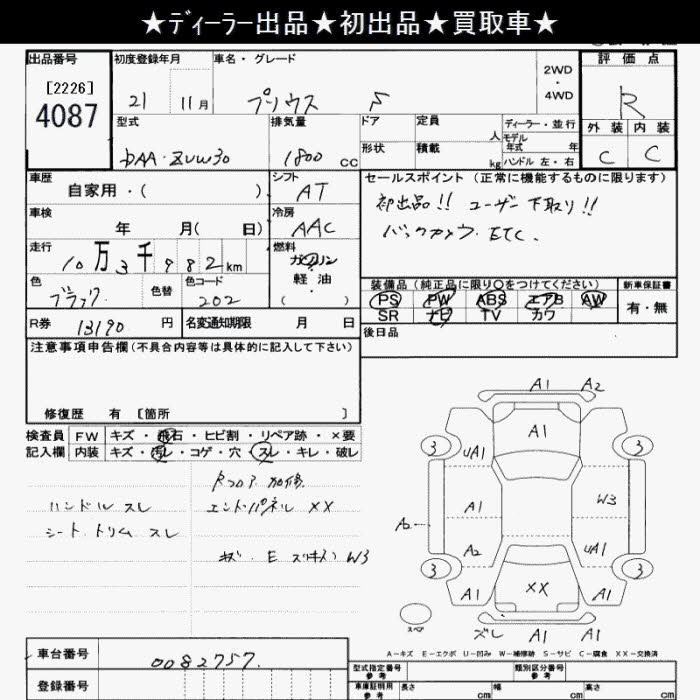 ★ディーラー出品★初出品★買取車★
出品番号 初度登録年月 車名・グレード 2WD・4WD 評価点
[2226]
4087
21 11月 プリウス S R
型式 排気量 ドア 定員 人 ディーラー・並行
モデル年式 年
DAA・ZVW30 1800 CC 形状 積載 kg ハンドル 左・右
外装 内装
C C
車歴 自家用・( ) シフト AT
セールスポイント (正常に機能するものに限ります)
初出品!! ユーザー下取り!!
バックカメラ ETC.
車検 年 月(日) 冷房 AAC
走行 10万3千982km 燃料 ガソリン
軽油・( )
色 ブラック 色替 色コード 202
装備品(純正品に限り○をつけてください) 新車保証書
PS PW ABS エアB AW 有・無
SR ナビ TV カワ
R券 13190 円 名変通知期限 月 日
後日品
注意事項申告欄(不具合内容等は具体的に記入して下さい)
修復歴 有 [箇所 ]
検査員 FW キズ・飛石・ヒビ割・リペア跡・×要
記入欄 内装 キズ・汚レ・コゲ・穴・スレ・キレ・破レ
ハンドル スレ
シート、トリム スレ
Rフロア 加修
エンドパネル XX
キズ・E スリキズ W3
A1 A2
A1
3 3
UA1
A1 W3
A2
A2 UA1
3 3
XX
A1 A1
スペア
ズレ A1 A1
A-キズ E-エクボ U-凹み W-補修跡 S-サビ C-腐食 XX-交換済
車台番号 0082757.
登録番号
型式指定番号 参考 類別区分番号 参考
車庫証明用 参考 長さ cm 幅 cm 高さ cm